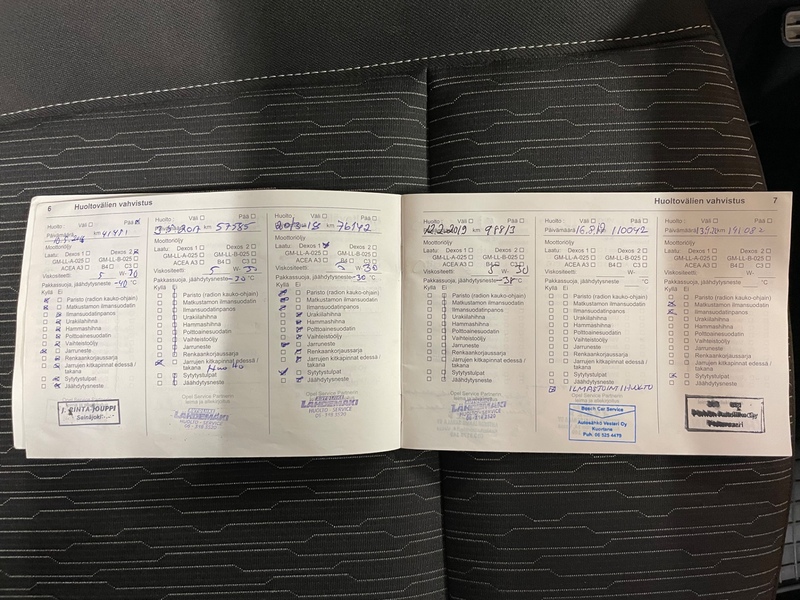 6 Huoltovälien vahvistus
Huolto : Väli Pää
Päivämäärä km 41471
Moottoriöljy
Laatu: Dexos 1 Dexos 2
GM-LL-A-025 GM-LL-B-025
ACEA A3 B4 C3
Viskositeetti 5 W- 30
Pakkassuoja, jäähdytysneste -40 °C
Kyllä Ei
Paristo (radion kauko-ohjain)
Matkustamon ilmansuodatin
Ilmansuodatinpanos
Urakilahihna
Hammashihna
Polttoainesuodatin
Vaihteistoöljy
Jarruneste
Renkaankorjaussarja
Jarrujen kitkapinnat edessä /
takana
Sytytystulpat
Jäähdytysneste
J. RINTA-JOUPPI
Seinäjoki
Huolto : Väli Pää
2017 km 57585
Moottoriöljy
Laatu: Dexos 1 Dexos 2
GM-LL-A-025 GM-LL-B-025
ACEA A3 B4 C3
Viskositeetti 5 W- 30
Pakkassuoja, jäähdytysneste °C
Kyllä Ei
Paristo (radion kauko-ohjain)
Matkustamon ilmansuodatin
Ilmansuodatinpanos
Urakilahihna
Hammashihna
Polttoainesuodatin
Vaihteistoöljy
Jarruneste
Renkaankorjaussarja
Jarrujen kitkapinnat edessä /
takana
Sytytystulpat
Jäähdytysneste
Opel Service Partnerin
leima ja allekirjoitus
HUOLTO - SERVICE
Huolto : Väli Pää
km 76142
Moottoriöljy
Laatu: Dexos 1 Dexos 2
GM-LL-A-025 GM-LL-B-025
ACEA A3 B4 C3
Viskositeetti W- 30
Pakkassuoja, jäähdytysneste -30 °C
Kyllä Ei
Paristo (radion kauko-ohjain)
Matkustamon ilmansuodatin
Ilmansuodatinpanos
Urakilahihna
Hammashihna
Polttoainesuodatin
Vaihteistoöljy
Jarruneste
Renkaankorjaussarja
Jarrujen kitkapinnat edessä /
takana
Sytytystulpat
Jäähdytysneste
Opel Service Partnerin
leima ja allekirjoitus
HUOLTO - SERVICE
Huoltovälien vahvistus 7
Huolto : Väli Pää
2.2019 km
Moottoriöljy
Laatu: Dexos 1 Dexos 2
GM-LL-A-025 GM-LL-B-025
ACEA A3 B4 C3
Viskositeetti 5 W- 30
Pakkassuoja, jäähdytysneste °C
Kyllä Ei
Paristo (radion kauko-ohjain)
Matkustamon ilmansuodatin
Ilmansuodatinpanos
Urakilahihna
Hammashihna
Polttoainesuodatin
Vaihteistoöljy
Jarruneste
Renkaankorjaussarja
Jarrujen kitkapinnat edessä /
takana
Sytytystulpat
Jäähdytysneste
Opel Service Partnerin
leima ja allekirjoitus
HUOLTO - SERVICE
Huolto : Väli Pää
Päivämäärä 110042
Moottoriöljy
Laatu: Dexos 1 Dexos 2
GM-LL-A-025 GM-LL-B-025
ACEA A3 B4 C3
Viskositeetti W-
Pakkassuoja, jäähdytysneste °C
Kyllä Ei
Paristo (radion kauko-ohjain)
Matkustamon ilmansuodatin
Ilmansuodatinpanos
Urakilahihna
Hammashihna
Polttoainesuodatin
Vaihteistoöljy
Jarruneste
Renkaankorjaussarja
Jarrujen kitkapinnat edessä /
takana
Sytytystulpat
Jäähdytysneste
ILMASTOINTIHUOLTO
Opel Service Partnerin
leima ja allekirjoitus
Bosch Car Service
Autosähkö Vesteri Oy
Kuortane
Puh. 06 525 4475
Huolto : Väli Pää
Päivämäärä km 191082
Moottoriöljy
Laatu: Dexos 1 Dexos 2
GM-LL-A-025 GM-LL-B-025
ACEA A3 B4 C3
Viskositeetti W-
Pakkassuoja, jäähdytysneste °C
Kyllä Ei
Paristo (radion kauko-ohjain)
Matkustamon ilmansuodatin
Ilmansuodatinpanos
Urakilahihna
Hammashihna
Polttoainesuodatin
Vaihteistoöljy
Jarruneste
Renkaankorjaussarja
Jarrujen kitkapinnat edessä /
takana
Sytytystulpat
Jäähdytysneste
Opel Service Partnerin
leima ja allekirjoitus